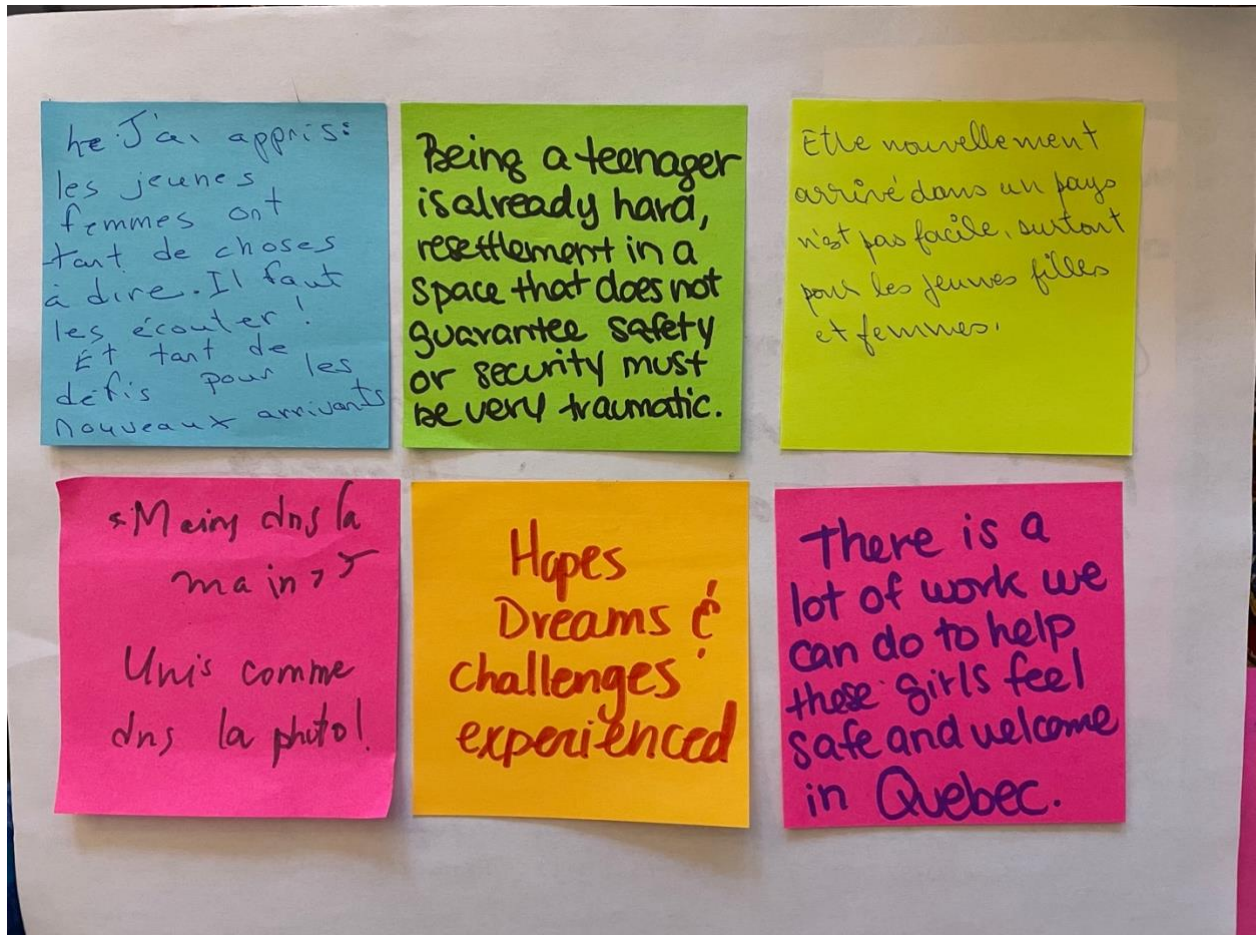 he J'ai appris:
les jeunes
femmes ont
tant de choses
à dire. Il faut
les écouter!
Et tant de
défis pour les
nouveaux arrivants
Being a teenager
is already hard,
resettlement in a
space that does not
guarantee safety
or security must
be very traumatic.
Etre nouvellement
arrivé dans un pays
n'est pas facile, surtout
pour les jeunes filles
et femmes.
"Mains dns la
main"
Unis comme
dns la photo!
Hopes
Dreams &
challenges
experienced
There is a
lot of work we
can do to help
these girls feel
safe and welcome
in Quebec.